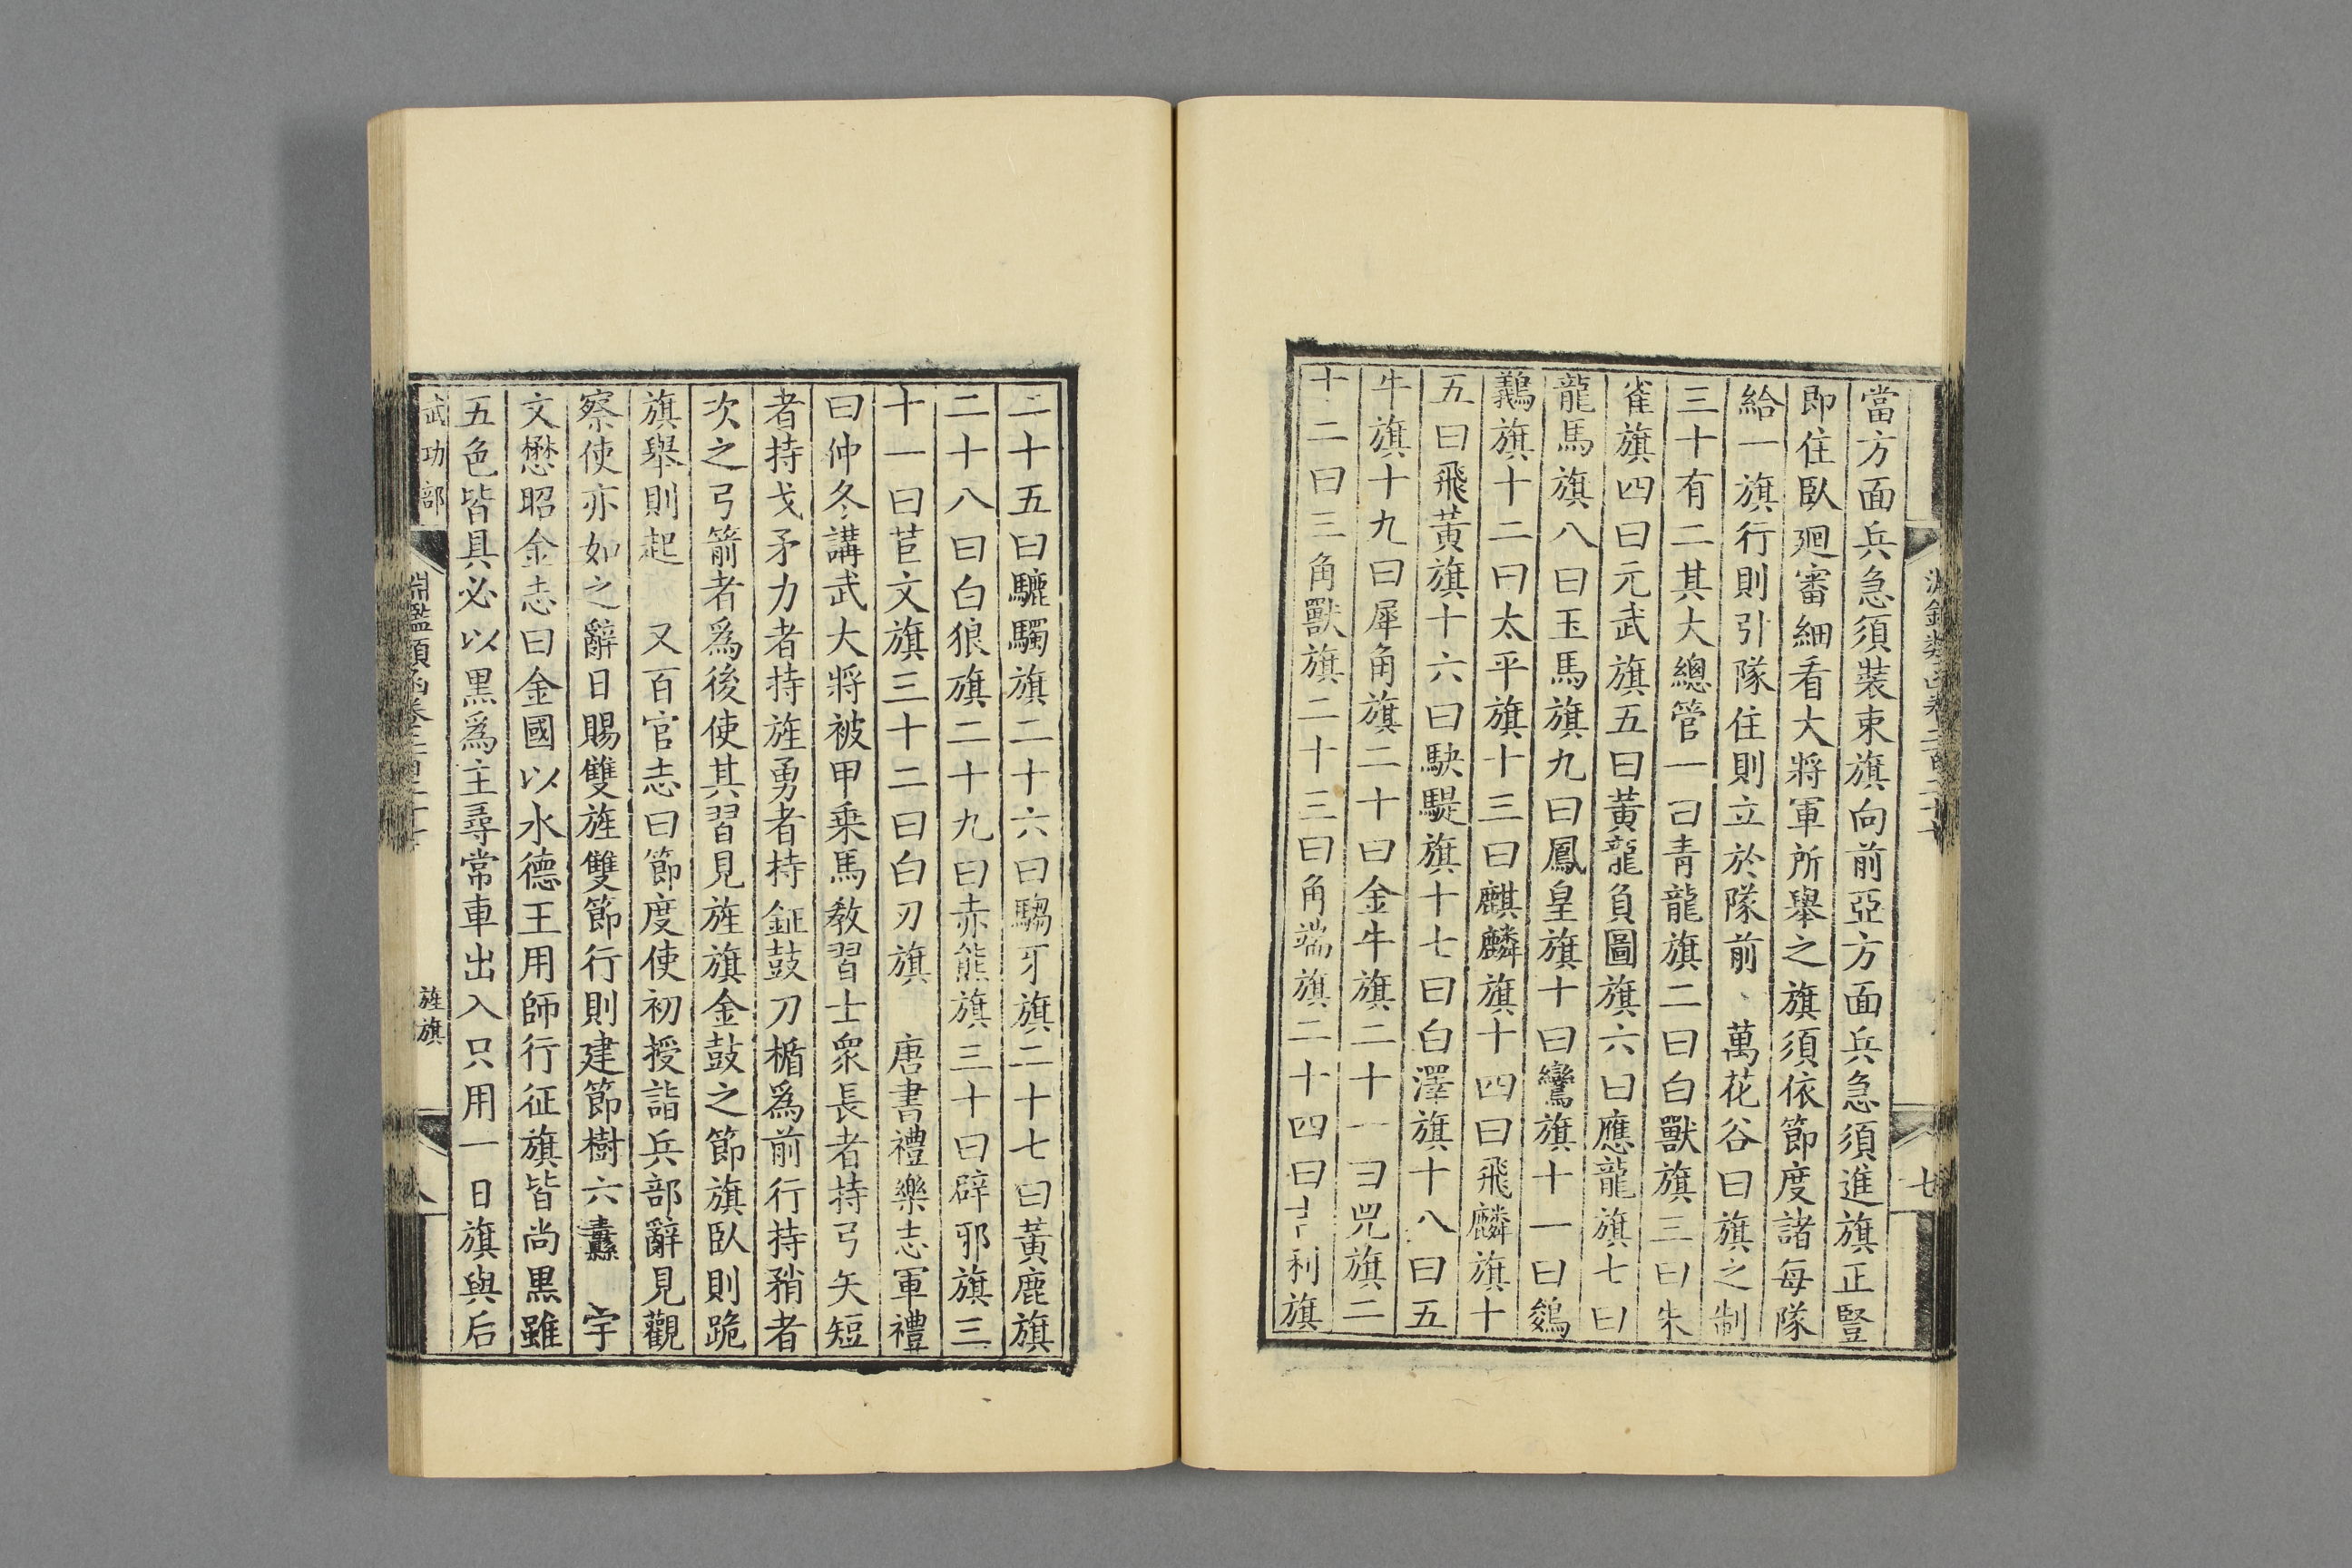 當方面兵急須裝束旗向前亞方面兵急須進旗正豎
即住臥廻審細看大將軍所舉之旗須依節度諸每隊
給一旗行則引隊住則立於隊前、萬花谷曰旗之制
三十有二其大總管一曰青龍旗二曰白獸旗三曰朱
雀旗四曰元武旗五曰黃龍負圖旗六曰應龍旗七曰
龍馬旗八曰玉馬旗九曰鳳皇旗十曰鸞旗十一曰鵕
鸃旗十二曰太平旗十三曰麒麟旗十四曰飛麟旗十
五曰飛黃旗十六曰駃騠旗十七曰白澤旗十八曰五
牛旗十九曰犀角旗二十曰金牛旗二十一曰兕旗二
十二曰三角獸旗二十三曰角端旗二十四曰吉利旗
二十五曰騼䮷旗二十六曰騶牙旗二十七曰黃鹿旗
二十八曰白狼旗二十九曰赤熊旗三十曰辟邪旗三
十一曰苣文旗三十二曰白刃旗 唐書禮樂志軍禮
曰仲冬講武大將被甲乗馬教習士衆長者持弓矢短
者持戈矛力者持旌勇者持鉦鼓刀楯爲前行持矟者
次之弓箭者爲後使其習見旌旗金鼓之節旗臥則跪
旗舉則起 又百官志曰節度使初授詣兵部辭見觀
察使亦如之辭日賜雙旌雙節行則建節樹六纛 宇
文懋昭金志曰金國以水德王用師行征旗皆尚黒雖
五色皆具必以黒爲主尋常車出入只用一日旗與后
武功部
淵鑑類函卷二百二十七
旌旗
八
七